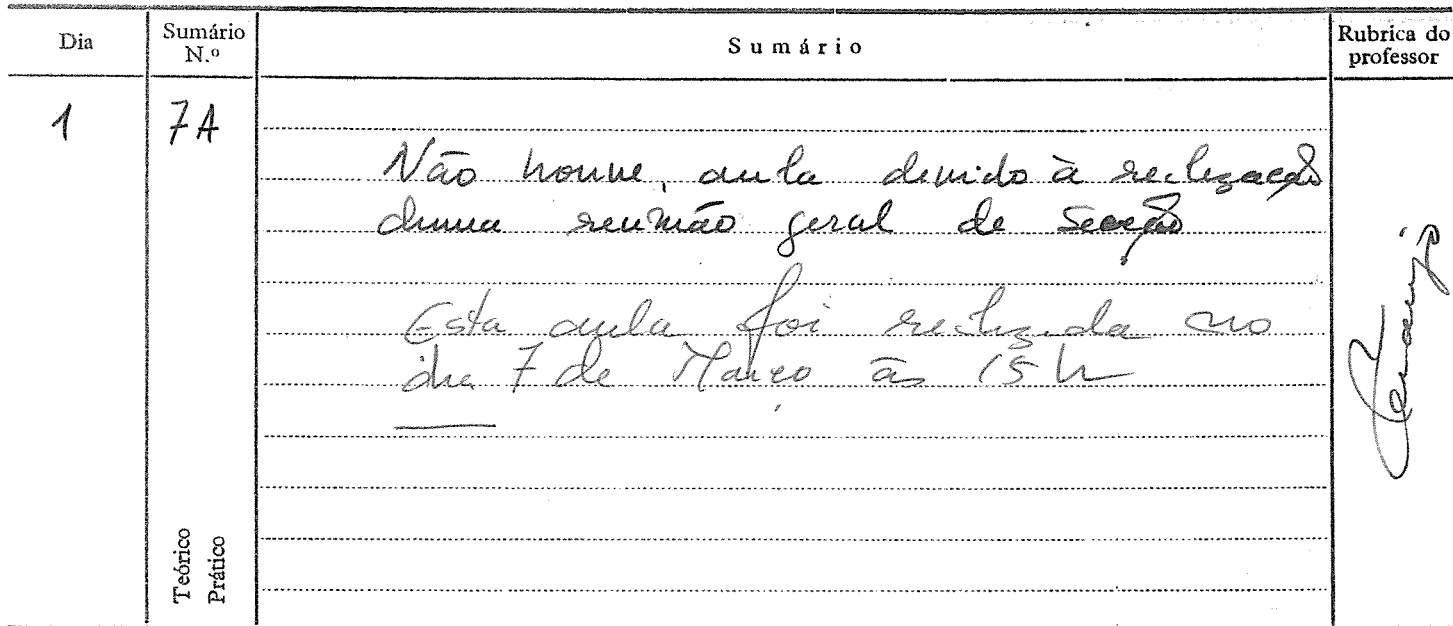 Dia
Sumário N.º
Sumário
Rubrica do professor
1
7A
Não houve, aula devido à realização
duma reunião geral de Secção
Esta aula foi realizada no
dia 7 de Março às 15 h
Teórico
Prático